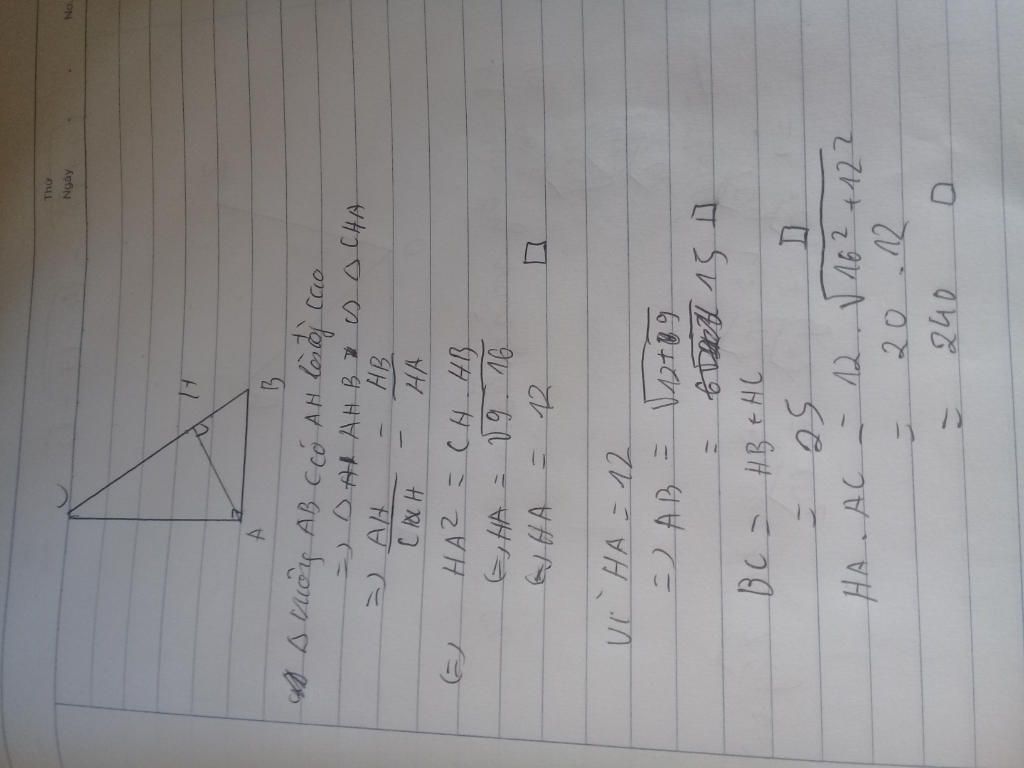 Thứ
Ngày
No.
C
H
A
B
Δ vuông ABC có AH là đg cao
=> Δ AHB ∽ Δ CHA
=> AH/CH = HB/HA
(=) HA2 = CH. HB
(=) HA = √9.16
(=) HA = 12 □
Vì HA = 12
=> AB = √12+9
= 15 □
BC = HB + HC
= 25 □
HA. AC = 12. √16² + 12²
= 20. 12
= 240 □